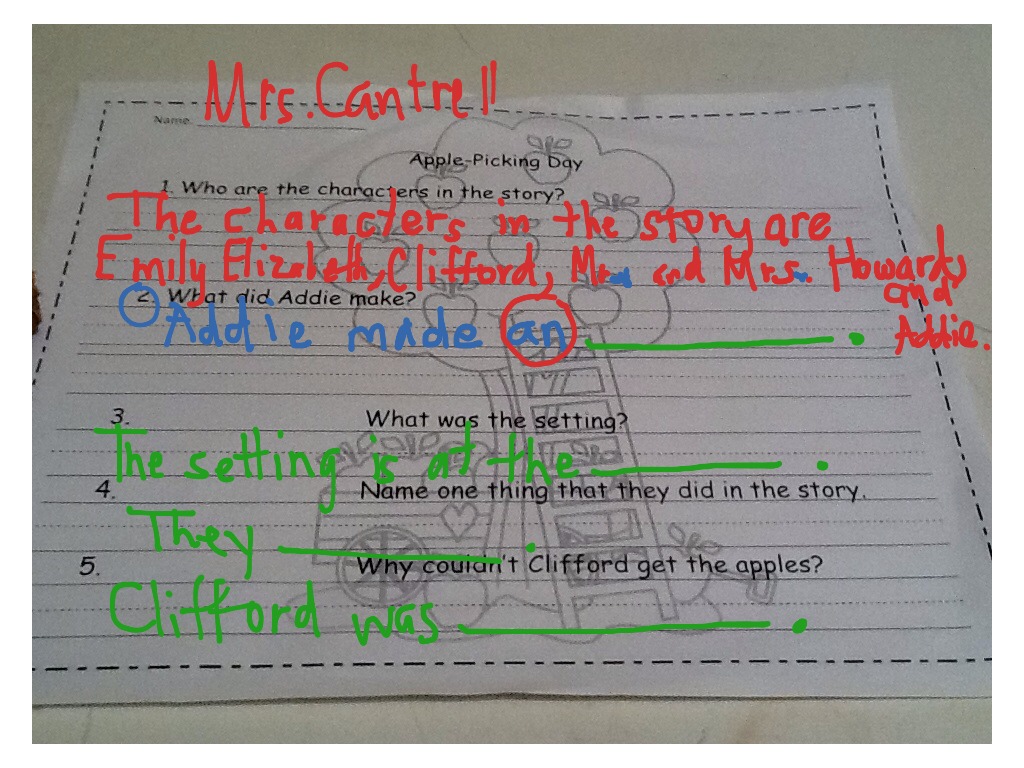 Mrs. Cantrell
Name:
Apple-Picking Day
1. Who are the characters in the story?
The characters in the story are
Emily Elizabeth, Clifford, Mr. and Mrs. Howard,
and
Addie.
2. What did Addie make?
Addie made an ________.
3. What was the setting?
The setting is at the ________.
4. Name one thing that they did in the story.
They ________.
5. Why couldn't Clifford get the apples?
Clifford was ________.